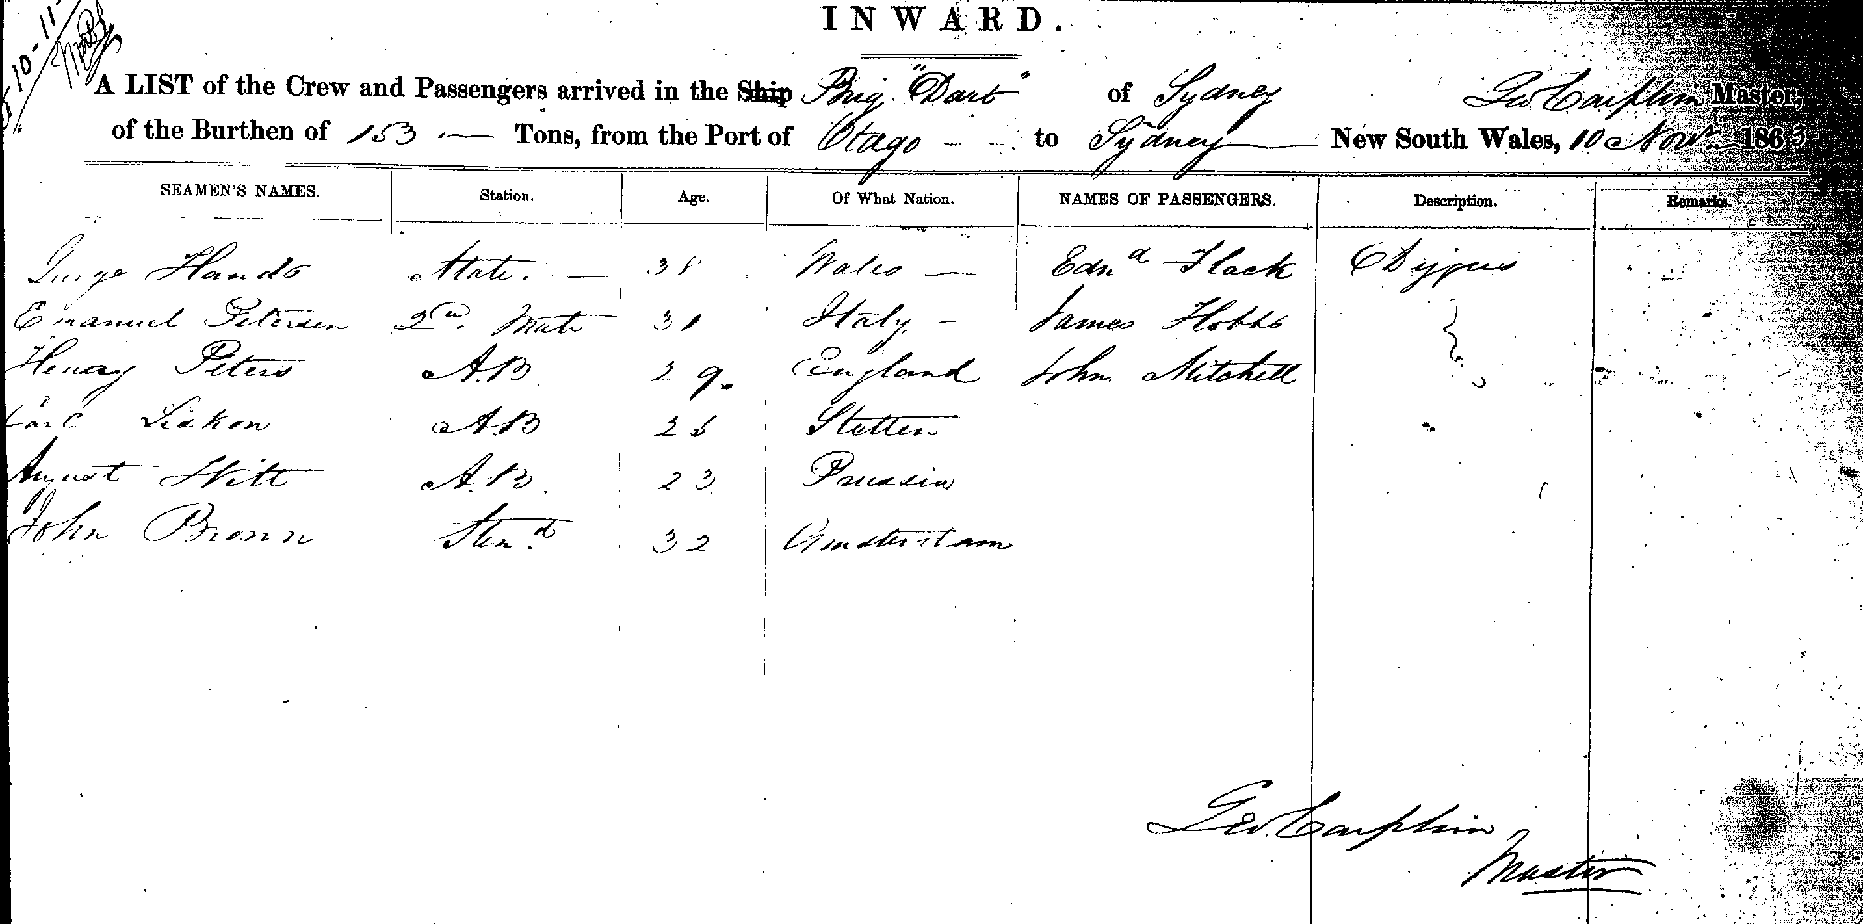 INWARD.
A LIST of the Crew and Passengers arrived in the Ship Brig "Dart" of Sydney Geo Carphin Master,
of the Burthen of 153 Tons, from the Port of Otago to Sydney New South Wales, 10 Novr 1863
SEAMEN'S NAMES. Station. Age. Of What Nation. NAMES OF PASSENGERS. Description. Remarks.
Hands Mate. 38 Wales Edwd Flack Diggers
Emanuel Petersen 2nd Mate 31 Italy James Hobbs
Henry Peters A.B 29. England John Mitchell
Carl A.B Stettin
August Witt A.B. 23 Prussia
John Brown Stewd 32 Amsterdam
Geo. Carphin
Master